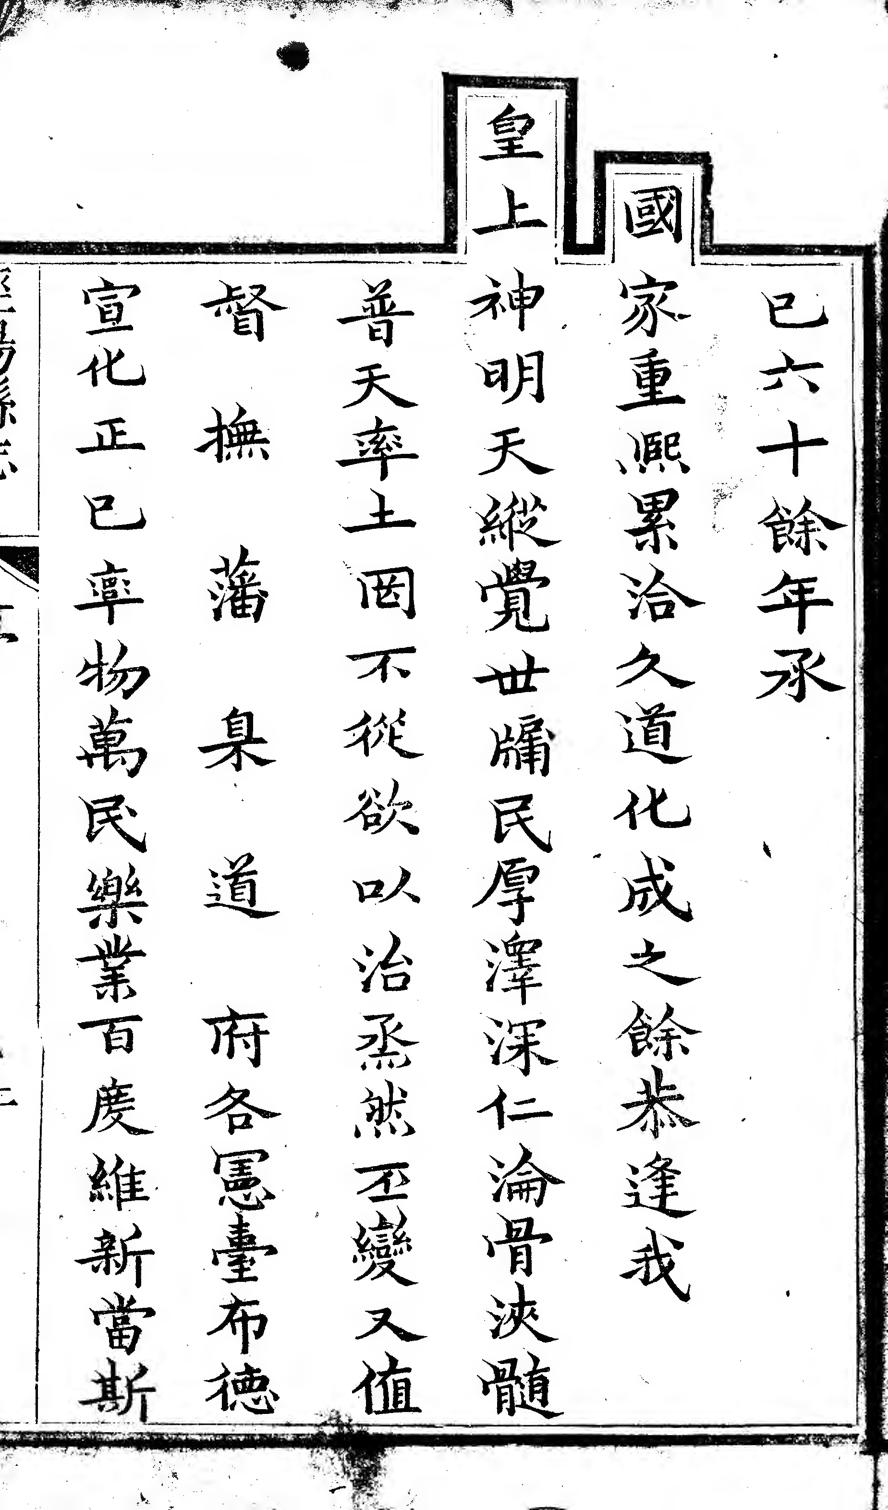 已六十餘年承
國家重熈累洽久道化成之餘恭逢我
皇上神明天縱覺世牖民厚澤深仁淪骨浹髓
普天率土罔不從欲以治烝然丕變又值
督撫藩臬道府各憲臺布德
宣化正已率物萬民樂業百度維新當斯
陽縣志